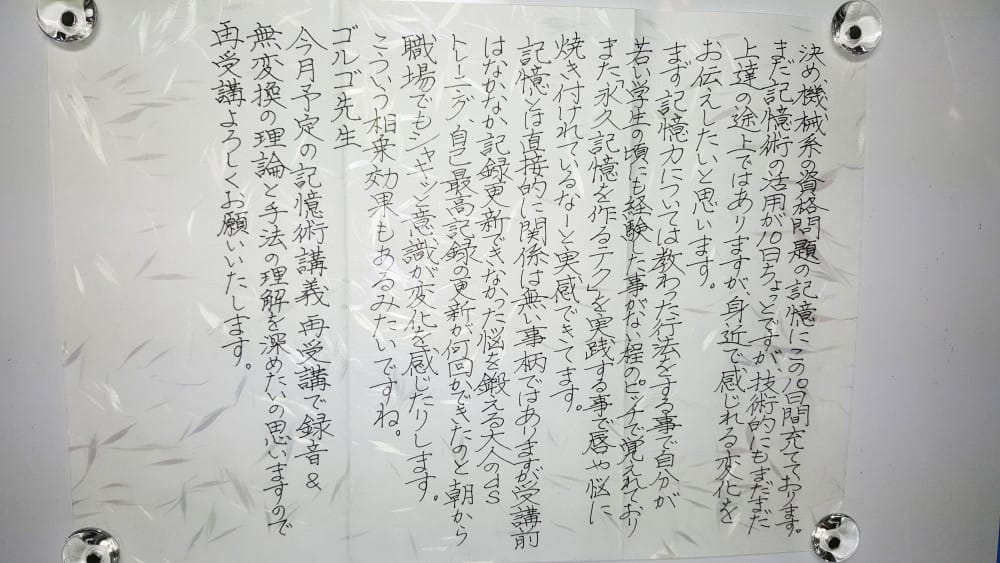 決め、機械系の資格問題の記憶にこの10日間充てております。
まだ記憶術の活用が10日ちょっとですが、技術的にもまだまだ
上達の途上ではありますが、身近で感じれる変化を
お伝えしたいと思います。
まず記憶力については教わった行法をする事で自分が
若い学生の頃にも経験した事がない程のピッチで覚えれており
また「永久記憶を作るテク」を実践する事で唇や脳に
焼き付けれているなーと実感できてます。
記憶とは直接的に関係は無い事柄ではありますが受講前
はなかなか記録更新できなかった脳を鍛える大人のDS
トレーニング、自己最高記録の更新が何回かできたのと朝から
職場でもシャキッと意識が変化を感じたりします。
こういう相乗効果もあるみたいですね。
ゴルゴ先生
今月予定の記憶術講義再受講で録音&
無変換の理論と手法の理解を深めたいの思いますので
再受講よろしくお願いいたします。